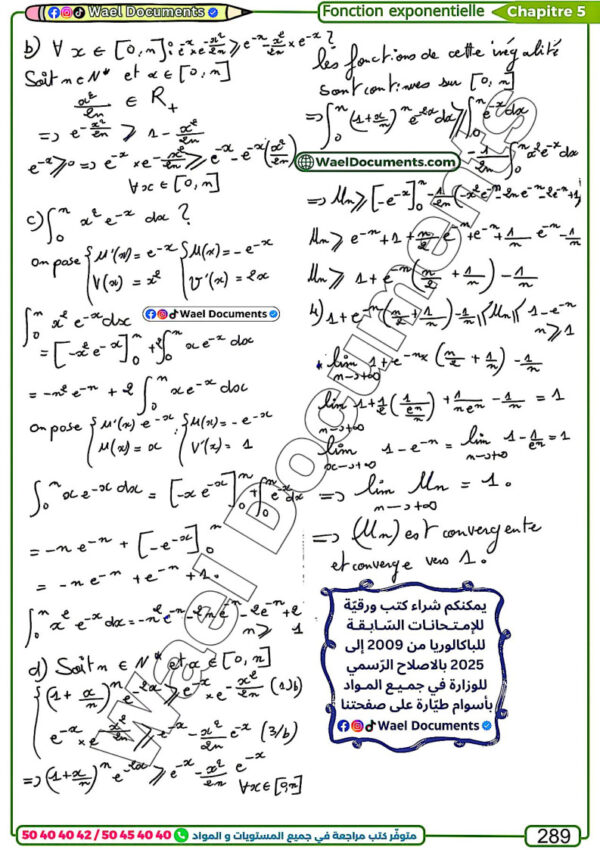 Wael Documents
Fonction exponentielle
Chapitre 5
b) ∀ x ∈ [0,n]: e^-x × e^-x²/2n ≥ e^-x - x²/2n × e^-x ?
Soit n ∈ N* et x ∈ [0,n]
x²/2n ∈ R+
=> e^-x²/2n ≥ 1 - x²/2n
e^-x ≥ 0 => e^-x × e^-x²/2n ≥ e^-x - e^-x (x²/2n)
∀ x ∈ [0,n]
c) ∫₀ⁿ x² e^-x dx ?
on pose { U'(x) = e^-x { U(x) = -e^-x
V(x) = x² V'(x) = 2x
∫₀ⁿ x² e^-x dx
Wael Documents
= [-x² e^-x]₀ⁿ + 2∫₀ⁿ x e^-x dx
= -n² e^-n + 2 ∫₀ⁿ x e^-x dx
on pose { U'(x) e^-x : { U(x) = -e^-x
U(x) = x V'(x) = 1
∫₀ⁿ x e^-x dx = [-x e^-x]₀ⁿ + ∫₀ⁿ e^-x dx
= -n e^-n + [-e^-x]₀ⁿ
= -n e^-n + e^-n + 1.
∫₀ⁿ x² e^-x dx = -n² e^-n - 2n e^-n - 2e^-n + 2
n ≥ 1
d) Soit n ∈ N* et x ∈ [0,n]
{ (1 + x/n)ⁿ e^-2x ≥ e^-x × e^-x²/2n (1)b)
e^-x × e^-x²/2n ≥ e^-x - x²/2n e^-x (3/b)
=> (1 + x/n)ⁿ e^-2x ≥ e^-x - x²/2n e^-x
∀ x ∈ [0,n]
les fonctions de cette inégalité
sont continues sur [0,n]
=> ∫₀ⁿ (1 + x/n)ⁿ e^-2x dx ≥ ∫₀ⁿ e^-x dx
WaelDocuments.com
- 1/2n ∫₀ⁿ x² e^-x dx
=> Un ≥ [-e^-x]₀ⁿ - 1/2n (-x² e^-n - 2n e^-n - 2e^-n +
Un ≥ e^-n + 1 + n/2 e^-n + e^-n + 1/n e^-n - 1/n
Un ≥ 1 + e^-n (n/2 + 1/n) - 1/n
4) 1 + e^-n (n/2 + 1/n) - 1/n ≤ Un ≤ 1 - e^-n
n ≥ 1
lim n→+∞ 1 + e^-n × (n/2 + 1/n) - 1/n
lim n→+∞ 1 + 1/2 (1/(eⁿ/n)) + 1/(n eⁿ) - 1/n = 1
lim x→+∞ 1 - e^-n = lim n→+∞ 1 - 1/eⁿ = 1
=> lim n→+∞ Un = 1.
=> (Un) est convergente
et converge vers 1.
يمكنكم شراء كتب ورقيّة
للإمتحانات السّابقة
للباكالوريا من 2009 إلى
2025 بالاصلاح الرّسمي
للوزارة في جميع المواد
بأسوام طيّارة على صفحتنا
Wael Documents
Wael Documents
50 40 40 42 / 50 45 40 40 متوفّر كتب مراجعة في جميع المستويات و المواد
289